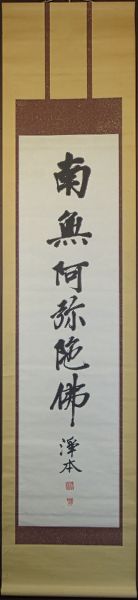 南無阿弥陀佛
澤本